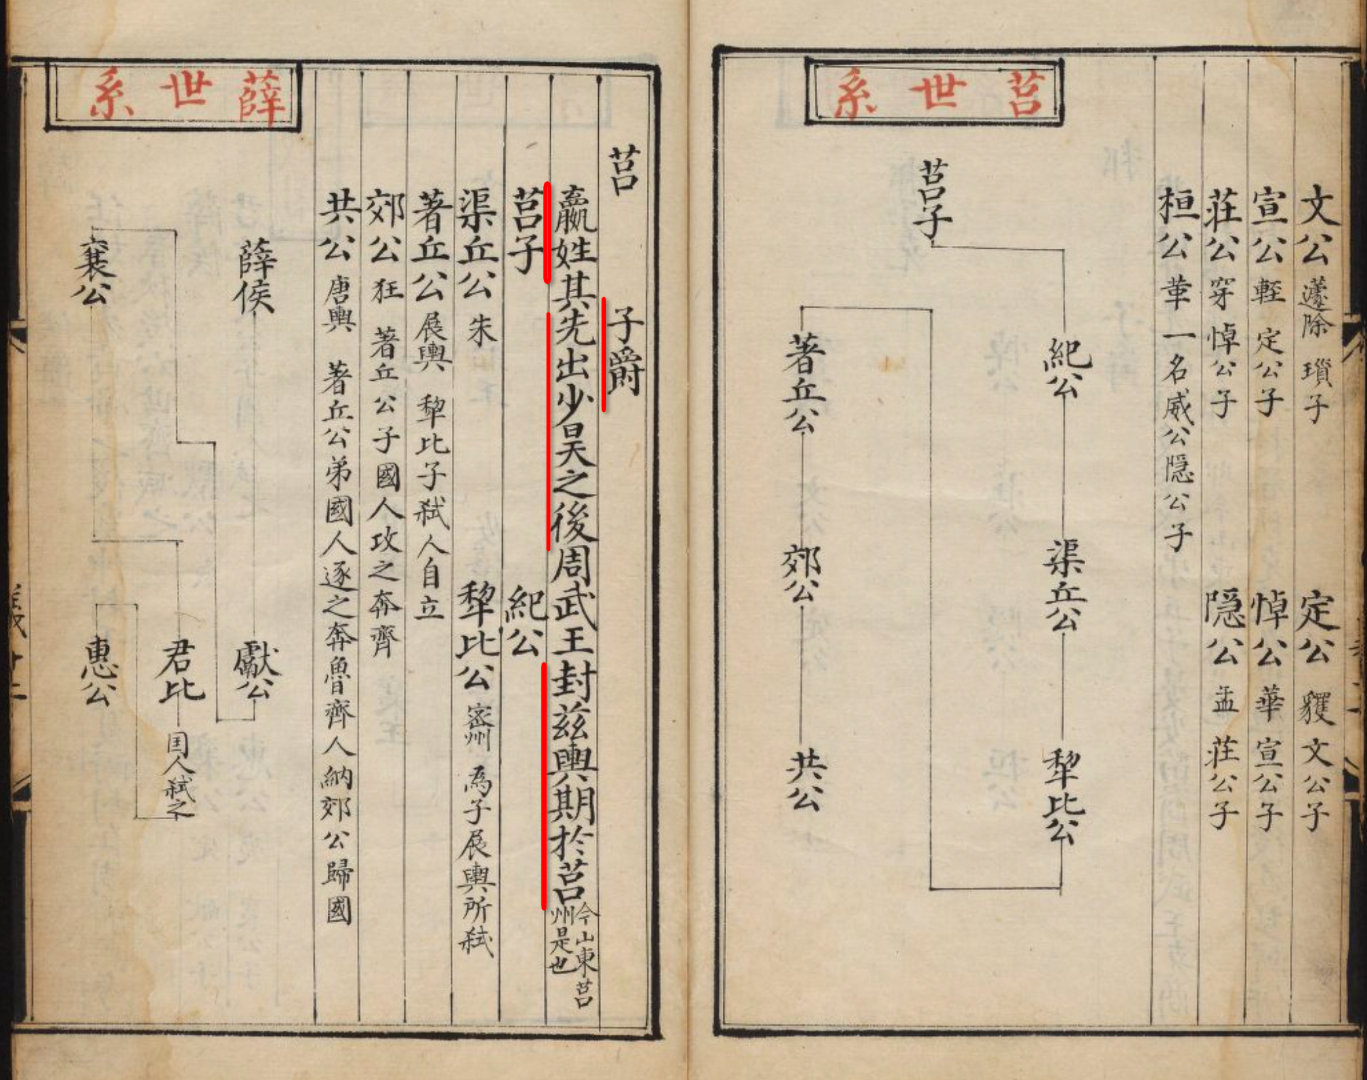 文公 蘧除 瑣子 定公 貜 文公子
宣公 輕 定公子 悼公 華 宣公子
莊公 穿 悼公子 隱公 盂 莊公子
桓公 革 一名威公隱公子
莒世系
莒子
紀公 渠丘公 犂比公
著丘公 郊公 共公
莒 子爵
嬴姓其先出少昊之後周武王封兹輿期於莒 今山東莒州是也
莒子 紀公
渠丘公 朱 犂比公 密州 為子展輿所弒
著丘公 展輿 犂比子弒人自立
郊公 狂 著丘公子國人攻之奔齊
共公 唐輿 著丘公弟國人逐之奔魯齊人納郊公歸國
薛世系
薛侯 獻公
君比 囯人弒之
襄公 惠公